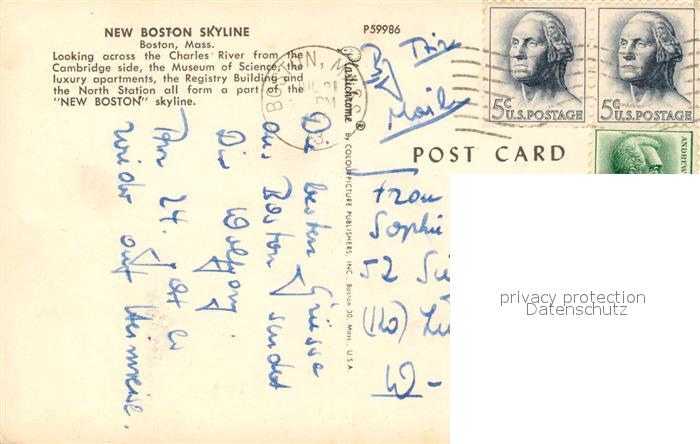 NEW BOSTON SKYLINE
Boston, Mass.
Looking across the Charles River from the
Cambridge side, the Museum of Science, the
luxury apartments, the Registry Building and
the North Station all form a part of the
"NEW BOSTON" skyline.
P59986
BOSTON, MASS
PM
5¢ U.S. POSTAGE
5¢ U.S. POSTAGE
ANDREW
By Air
Mail
Plastichrome ®
By COLOURPICTURE PUBLISHERS, INC., Boston 30, Mass., U.S.A.
POST CARD
Die besten Grüsse
aus Boston sendet
Dir Wolfgang
Am 24. ist er
wieder auf Heimreise.
Frau
Sophie
52 Si
W-
privacy protection
Datenschutz